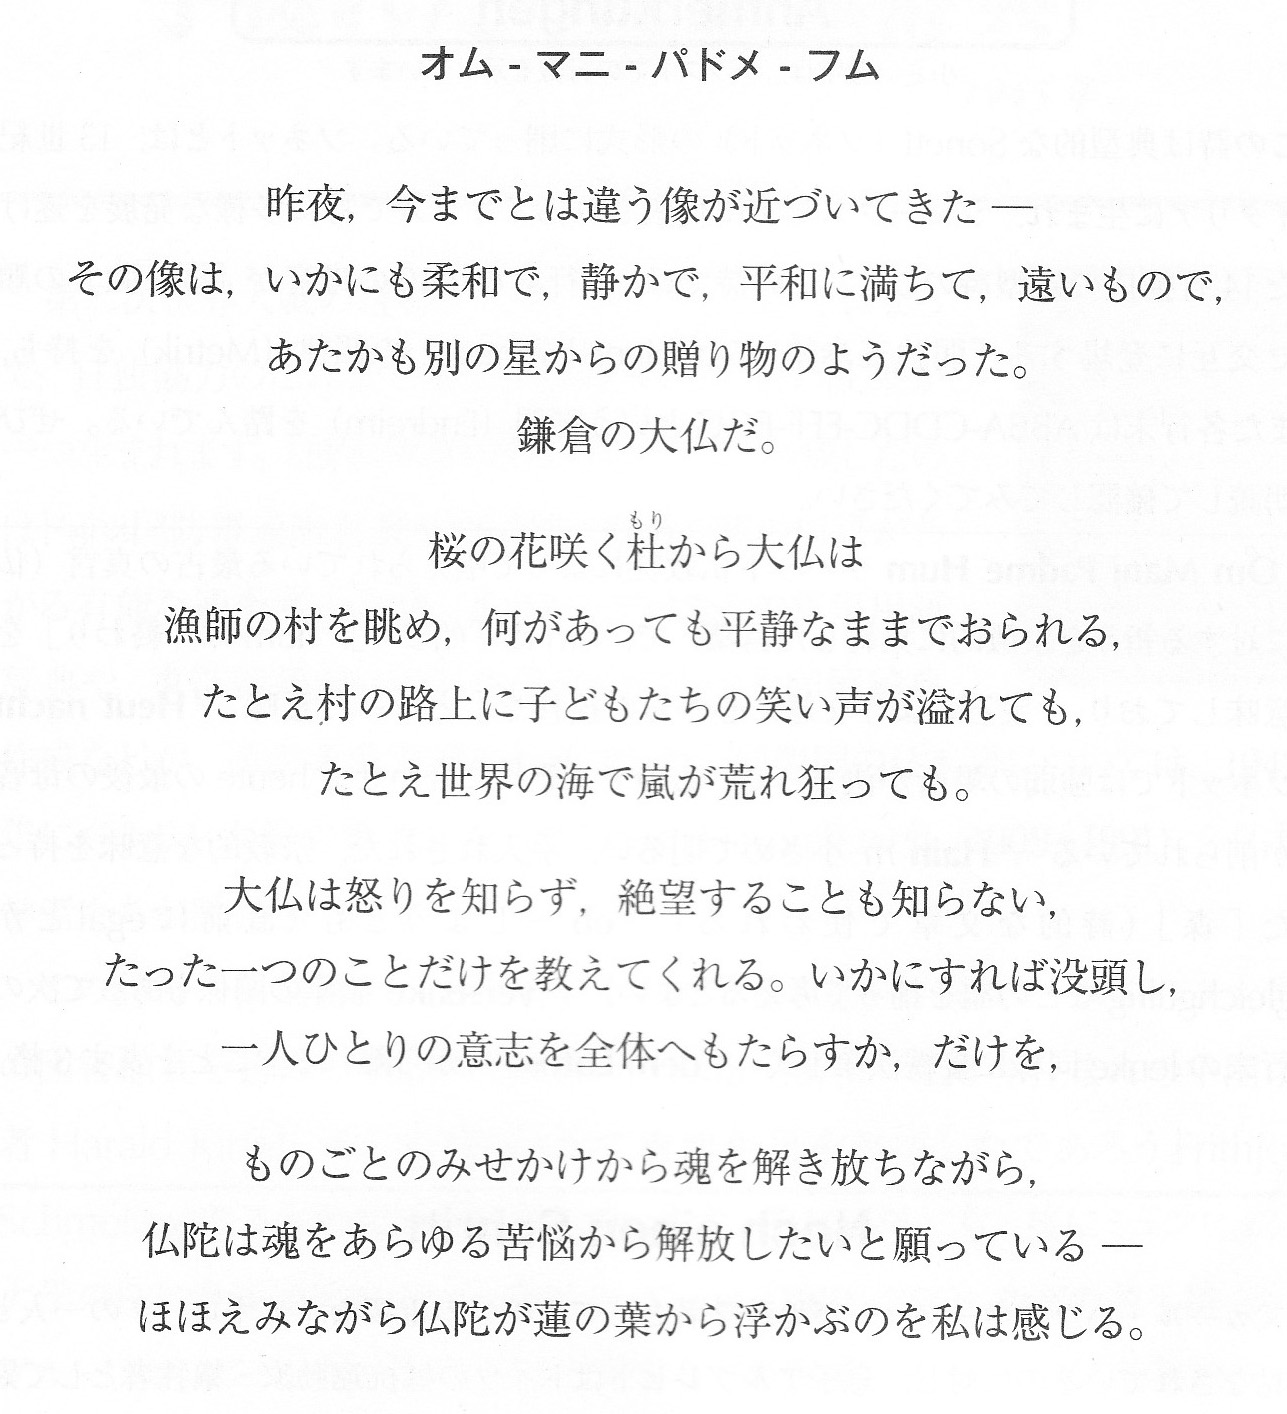 オム - マニ - パドメ - フム
昨夜，今までとは違う像が近づいてきた ―
その像は，いかにも柔和で，静かで，平和に満ちて，遠いもので，
あたかも別の星からの贈り物のようだった。
鎌倉の大仏だ。
もり
桜の花咲く杜から大仏は
漁師の村を眺め，何があっても平静なままでおられる，
たとえ村の路上に子どもたちの笑い声が溢れても，
たとえ世界の海で嵐が荒れ狂っても。
大仏は怒りを知らず，絶望することも知らない，
たった一つのことだけを教えてくれる。いかにすれば没頭し，
一人ひとりの意志を全体へもたらすか，だけを，
ものごとのみせかけから魂を解き放ちながら，
仏陀は魂をあらゆる苦悩から解放したいと願っている ―
ほほえみながら仏陀が蓮の葉から浮かぶのを私は感じる。